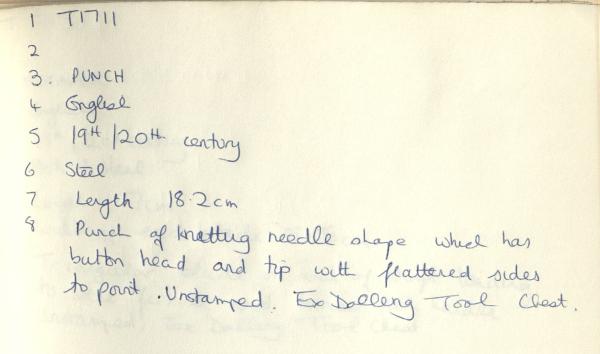 1 T1711
2
3. PUNCH
4 English
5 19th/20th century
6 Steel
7 Length 18.2cm
8 Punch of knitting needle shape which has
button head and tip with flattered sides
to point. Unstamped. Ex Dolleng Tool Chest.